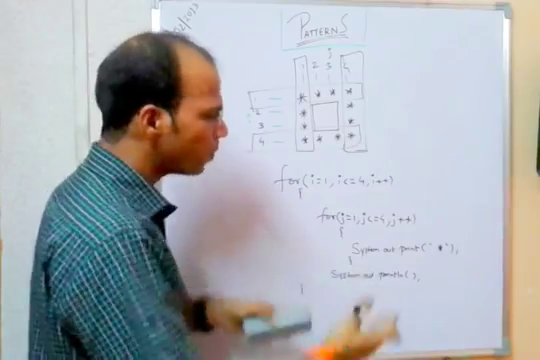 PATTERNS
j
1 2 3 4
* * * *
2 * *
3 * *
4 * * * *
for(i=1, i<=4, i++)
{
for(j=1, j<=4, j++)
{
System out print(" * "),
}
System out println( ),
}